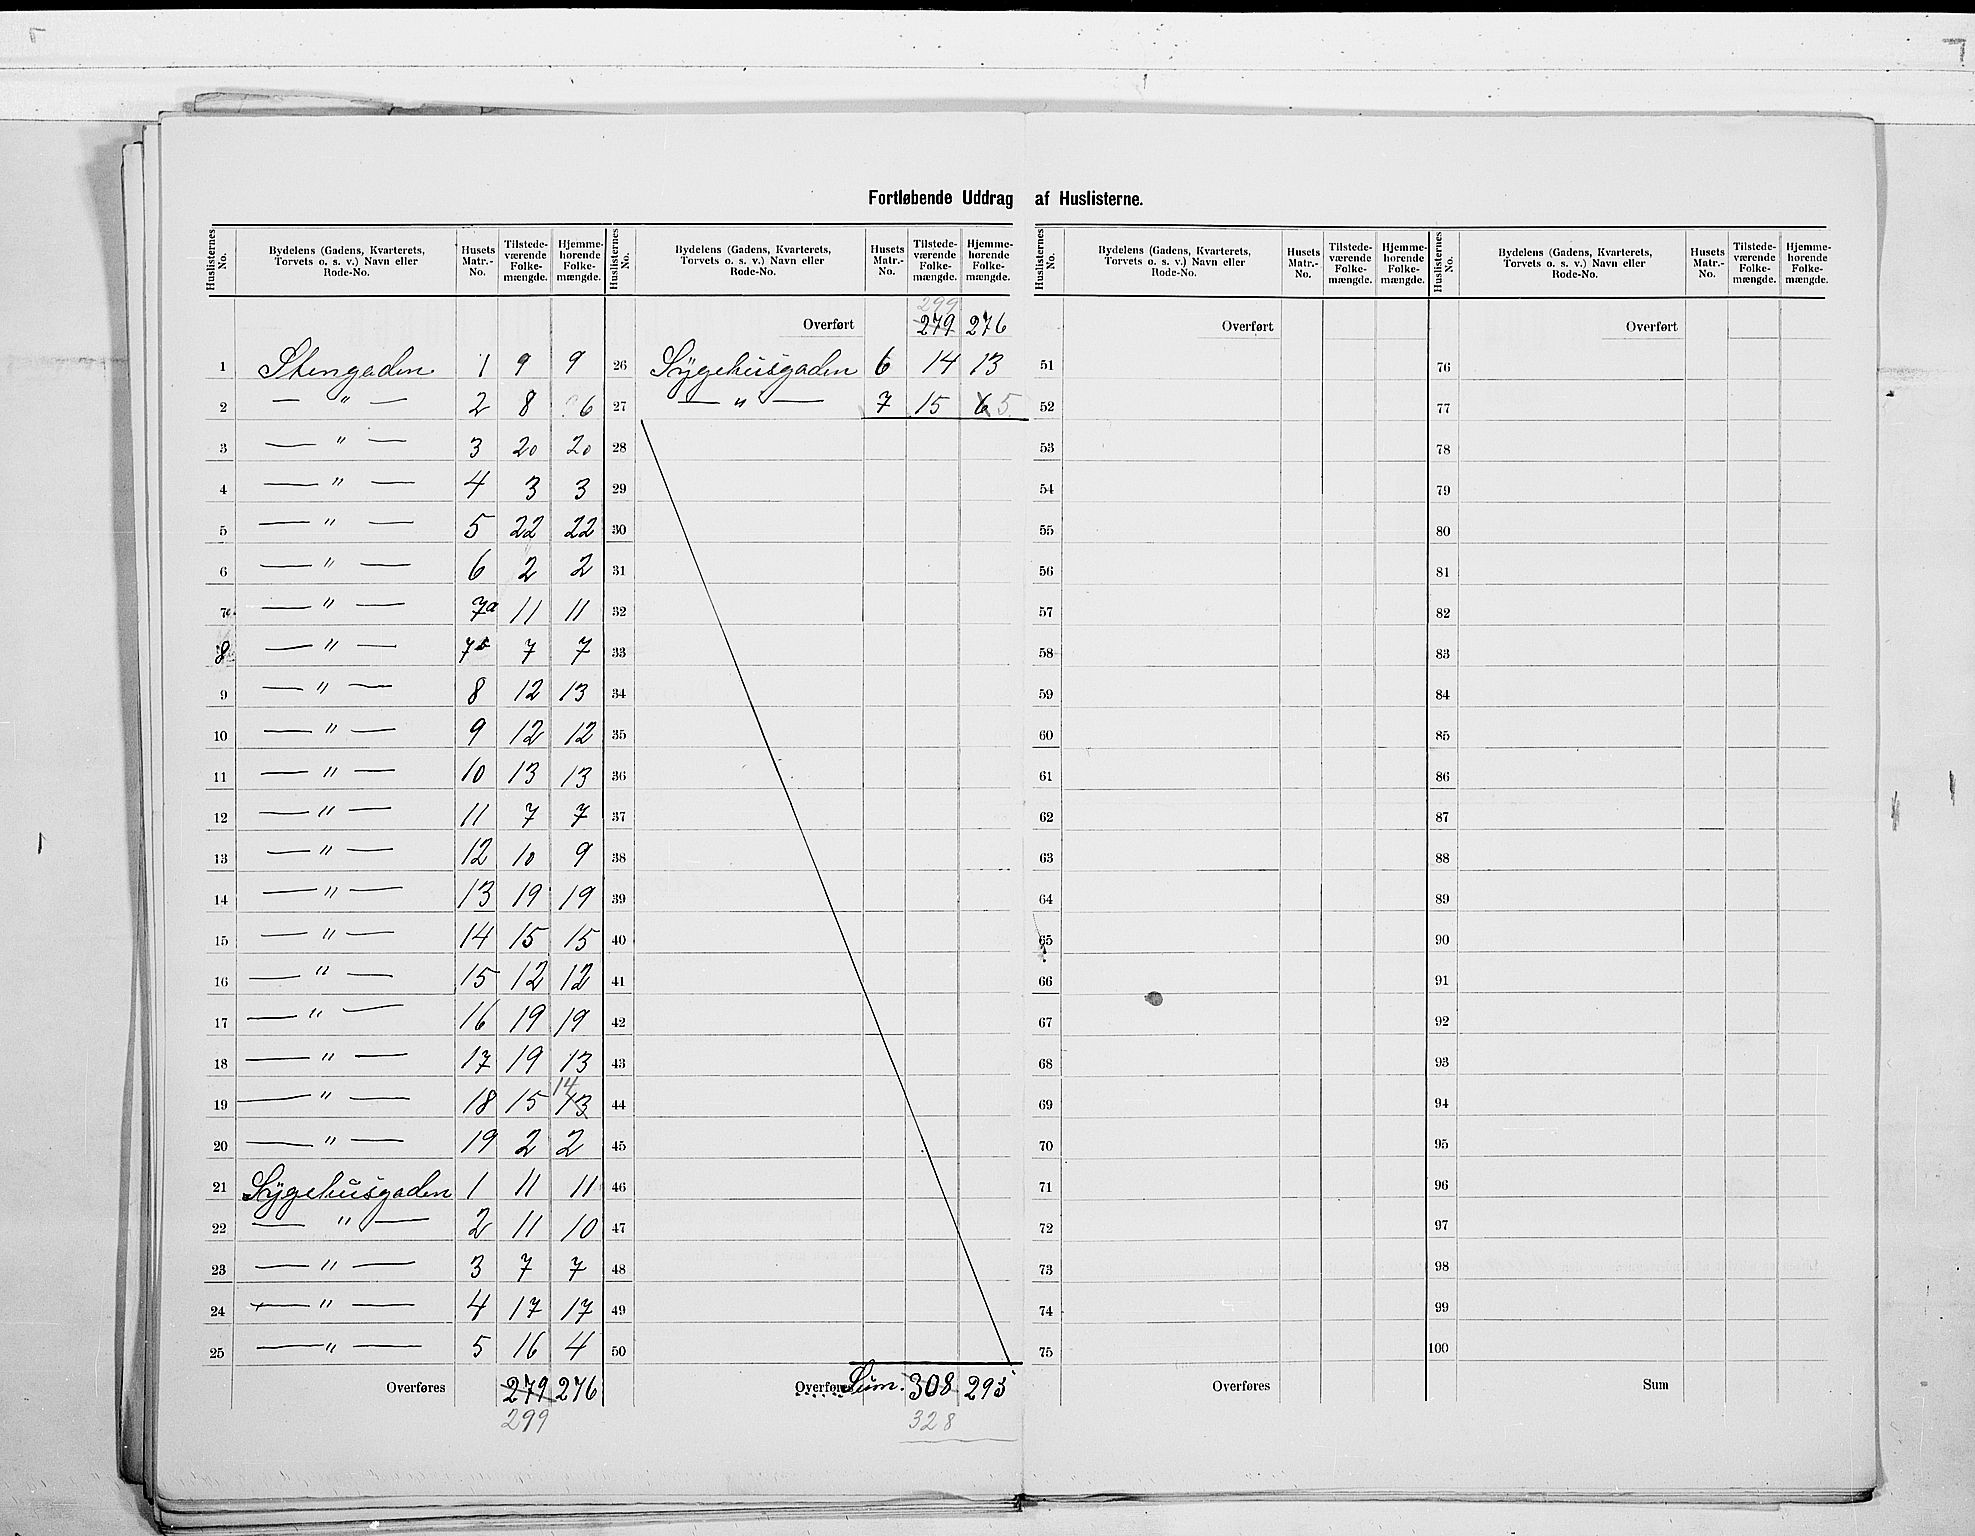 Fortløbende Uddrag af Huslisterne.
Huslisternes No. | Bydelens (Gadens, Kvarterets, Torvets o. s. v.) Navn eller Rode-No. | Husets Matr.-No. | Tilstede-værende Folke-mængde. | Hjemme-hørende Folke-mængde.
1 Stengaden 1 9 9
2 — " — 2 8 6
3 — " — 3 20 20
4 — " — 4 3 3
5 — " — 5 22 22
6 — " — 6 2 2
7a — " — 7a 11 11
8 — " — 7b 7 7
9 — " — 8 12 13
10 — " — 9 12 12
11 — " — 10 13 13
12 — " — 11 7 7
13 — " — 12 10 9
14 — " — 13 19 19
15 — " — 14 15 15
16 — " — 15 12 12
17 — " — 16 19 19
18 — " — 17 19 13
19 — " — 18 15 13 14
20 — " — 19 2 2
21 Sygehusgaden 1 11 11
22 — " — 2 11 10
23 — " — 3 7 7
24 — " — 4 17 17
25 — " — 5 16 4
Overføres 279 276
299
Huslisternes No. | Bydelens (Gadens, Kvarterets, Torvets o. s. v.) Navn eller Rode-No. | Husets Matr.-No. | Tilstede-værende Folke-mængde. | Hjemme-hørende Folke-mængde.
299
Overført 279 276
26 Sygehusgaden 6 14 13
27 — " — 7 15 6 5
28
29
30
31
32
33
34
35
36
37
38
39
40
41
42
43
44
45
46
47
48
49
50
Overføres Sum. 308 295
328
Huslisternes No. | Bydelens (Gadens, Kvarterets, Torvets o. s. v.) Navn eller Rode-No. | Husets Matr.-No. | Tilstede-værende Folke-mængde. | Hjemme-hørende Folke-mængde.
Overført
51
52
53
54
55
56
57
58
59
60
61
62
63
64
65
66
67
68
69
70
71
72
73
74
75
Overføres
Huslisternes No. | Bydelens (Gadens, Kvarterets, Torvets o. s. v.) Navn eller Rode-No. | Husets Matr.-No. | Tilstede-værende Folke-mængde. | Hjemme-hørende Folke-mængde.
Overført
76
77
78
79
80
81
82
83
84
85
86
87
88
89
90
91
92
93
94
95
96
97
98
99
100
Sum